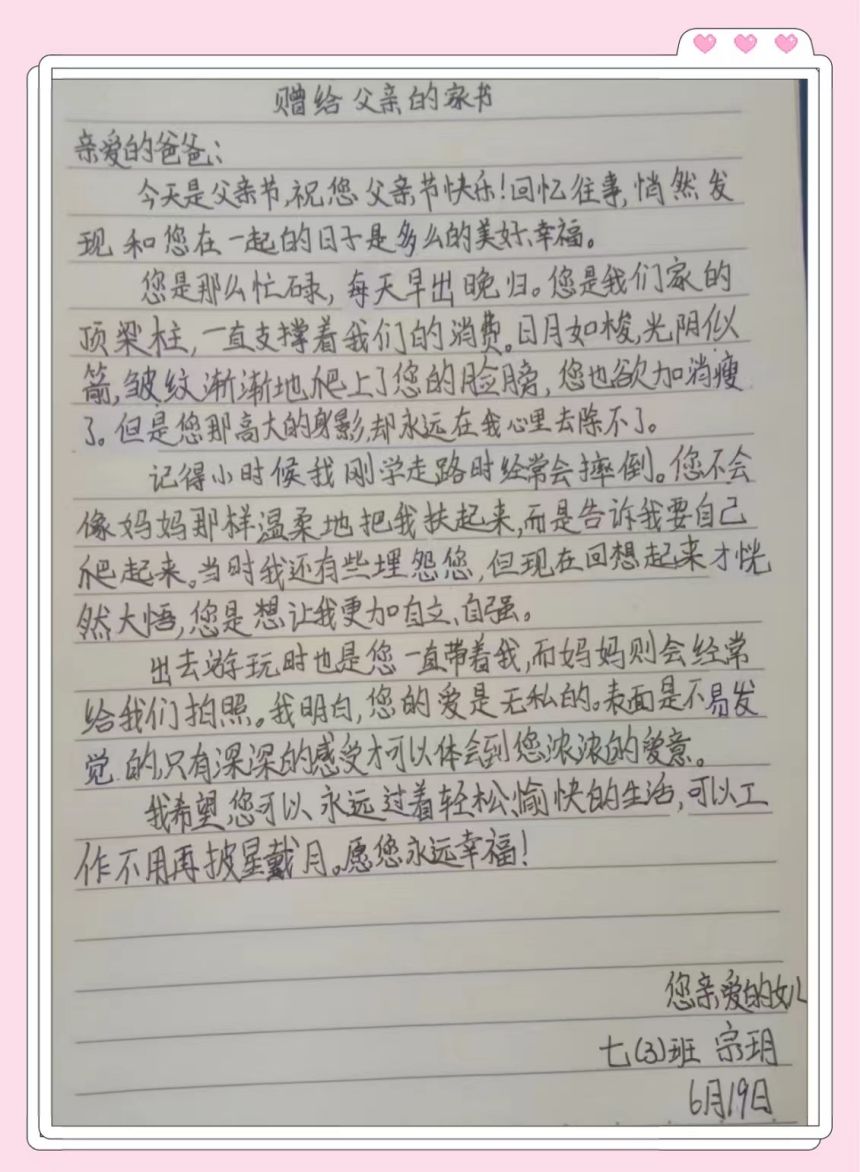 赠给父亲的家书
亲爱的爸爸：
今天是父亲节，祝您父亲节快乐！回忆往事，悄然发
现和您在一起的日子是多么的美好、幸福。
您是那么忙碌，每天早出晚归。您是我们家的
顶梁柱，一直支撑着我们的消费。日月如梭，光阴似
箭，皱纹渐渐地爬上了您的脸膀，您也欲加消瘦
了。但是您那高大的身影，却永远在我心里去除不了。
记得小时候我刚学走路时经常会摔倒。您不会
像妈妈那样温柔地把我扶起来，而是告诉我要自己
爬起来。当时我还有些埋怨您，但现在回想起来才恍
然大悟，您是想让我更加自立、自强。
出去游玩时也是您一直带着我，而妈妈则会经常
给我们拍照。我明白，您的爱是无私的。表面是不易发
觉的，只有深深的感受才可以体会到您浓浓的爱意。
我希望您可以永远过着轻松、愉快的生活，可以工
作不用再披星戴月。愿您永远幸福！
您亲爱的女儿
七(3)班 宗玥
6月19日